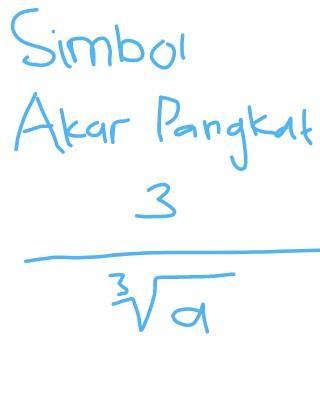 Simbol
Akar Pangkat
3
³√a